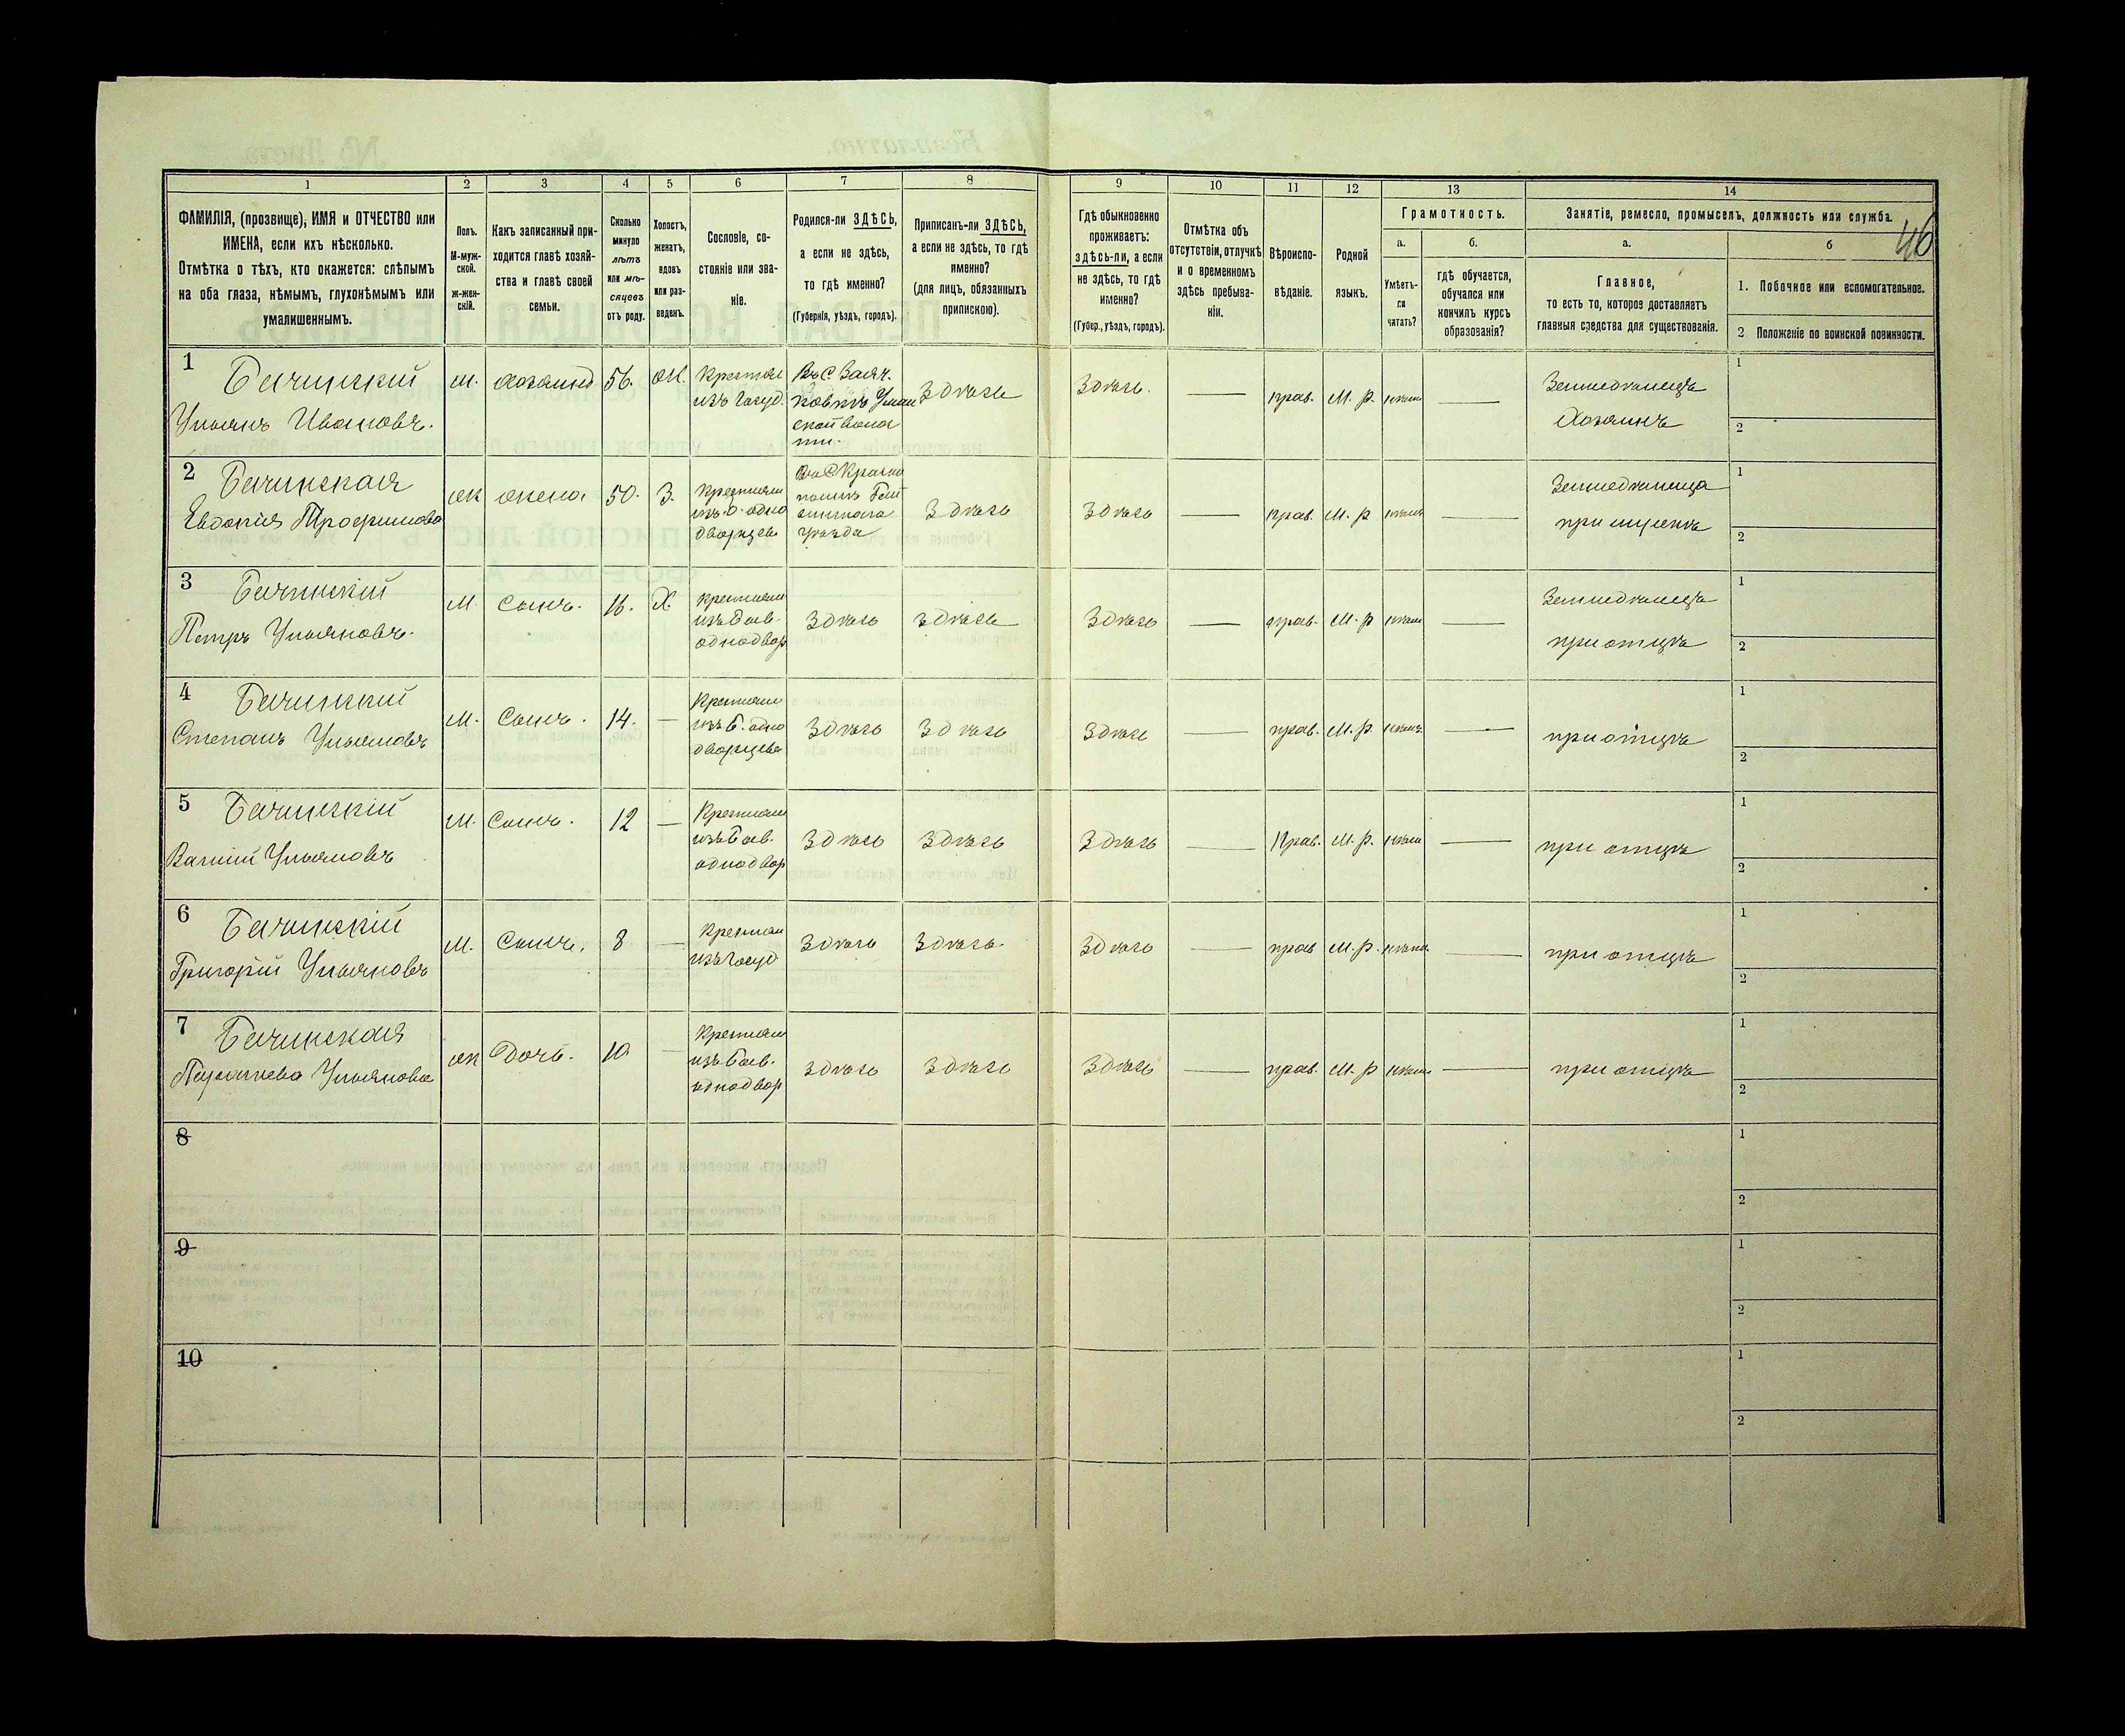 46
1 2 3 4 5 6 7 8 9 10 11 12 13 14
ФАМИЛІЯ, (прозвище), ИМЯ и ОТЧЕСТВО или
ИМЕНА, если ихъ нѣсколько.
Отмѣтка о тѣхъ, кто окажется: слѣпымъ
на оба глаза, нѣмымъ, глухонѣмымъ или
умалишеннымъ.
Полъ.
М-муж-
ской.
ж-жен-
скій.
Какъ записанный при-
ходится главѣ хозяй-
ства и главѣ своей
семьи.
Сколько
минуло
лѣтъ
или мѣ-
сяцевъ
отъ роду.
Холостъ,
женатъ,
вдовъ
или раз-
веденъ.
Сословіе, со-
стояніе или зва-
ніе.
Родился-ли ЗДѢСЬ,
а если не здѣсь,
то гдѣ именно?
(Губернія, уѣздъ, городъ).
Приписанъ-ли ЗДѢСЬ,
а если не здѣсь, то гдѣ
именно?
(для лицъ, обязанныхъ
припискою).
Гдѣ обыкновенно
проживаетъ:
здѣсь-ли, а если
не здѣсь, то гдѣ
именно?
(Губер., уѣздъ, городъ).
Отмѣтка объ
отсутствіи, отлучкѣ
и о временномъ
здѣсь пребыва-
ніи.
Вѣроиспо-
вѣданіе.
Родной
языкъ.
Грамотность.
а.
Умѣетъ-
ли
читать?
б.
гдѣ обучается,
обучался или
кончилъ курсъ
образованія?
Занятіе, ремесло, промыселъ, должность или служба.
а.
Главное,
то есть то, которое доставляетъ
главныя средства для существованія.
б
1. Побочное или вспомогательное.
2 Положеніе по воинской повинности.
1 Бачинскій
Ульянъ Ивановъ.
м. хозяинъ 56. ж.
Крестьян
изъ Госуд.
Здѣсь Здѣсь. — прав. М. р. —
Земледѣлецъ
Хозяинъ
1
2
2 Бачинская
Евдокія Трофимова
жена 50. З.
дворцевъ
уѣзда
Здѣсь Здѣсь — прав. М. р —
Земледѣлица
1
2
3 Бачинскій
Петръ Ульяновъ.
М. Сынъ. 16. Х.
Крестьян
однодвор
Здѣсь Здѣсь Здѣсь — прав. М. р —
Земледѣлецъ
при отцѣ
1
2
4 Бачинскій
Степанъ Ульяновъ
М. Сынъ. 14. —
Крестьян
изъ б. одно
дворцевъ
Здѣсь Здѣсь Здѣсь — прав. М. р. —
при отцѣ
1
2
5 Бачинскій
Ульяновъ
М. Сынъ. 12 —
Крестьян
однодвор
Здѣсь Здѣсь Здѣсь — Прав. М. р. —
при отцѣ
1
2
6 Бачинскій
Григорій Ульяновъ
М. Сынъ. 8 —
Крестьян
изъ Госуд
Здѣсь Здѣсь. Здѣсь — прав М. р. —
при отцѣ
1
2
7 Бачинская
Ульянова
Дочь. 10 —
Крестьян
однодвор
Здѣсь Здѣсь Здѣсь — прав. М. р —
при отцѣ
1
2
8
1
2
9
1
2
10
1
2